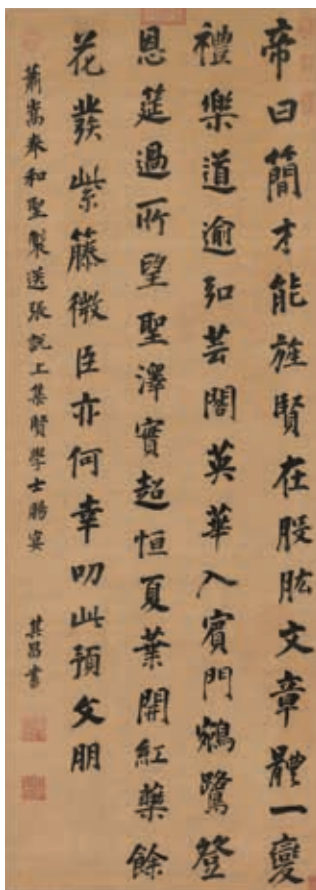 帝曰簡才能旌賢在股肱文章體一變
禮樂道逾弘芸閣英華入賓門鵷鷺登
恩筵過所望聖澤實超恒夏葉開紅藥餘
花發紫藤微臣亦何幸叨此預文朋
蕭嵩奉和聖製送張說上集賢學士賜宴
其昌書